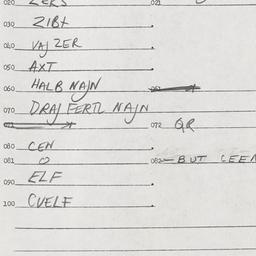 020 ZEKS 021
030 ZIBT
040 VAJ ZER
050 AXT
060 HALB NAJN
070 DRAJ FERTL NAJN
072 QR
080 CEN
081 O 082 BUT CEEN
090 ELF
100 CVELF